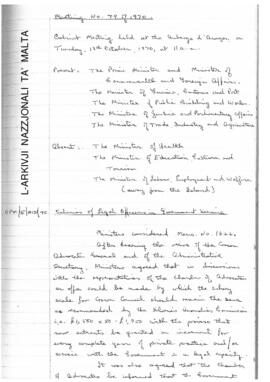 Meeting No. 77 of 1970.
Cabinet Meeting held at the Auberge d'Aragon, on
Tuesday, 13th October, 1970, at 11 a.m.
Present. The Prime Minister and Minister of
Commonwealth and Foreign Affairs.
The Minister of Finance, Customs and Port
The Minister of Public Building and Works.
The Minister of Justice and Parliamentary Affairs
The Minister of Trade Industry and Agriculture
Absent. The Minister of Health
The Minister of Education, Culture and
Tourism
The Minister of Labour, Employment and Welfare
(away from the Island)
L-ARKIVJI NAZZJONALI TA' MALTA
Salaries of Legal Officers in Government Service
Ministers considered Memo. No.
After hearing the views of the Crown
Advocate General and of the Administrative
Secretary, Ministers agreed that in discussions
with the representatives of the Chamber of Advocates
an offer could be made by which the salary
scale for Crown Counsel should remain the same
as recommended by the Salaries Commission
i.e. with the proviso that
new entrants be granted an increment for
every complete year of private practice and/or
service with the Government in a legal capacity.
It was also agreed that the Chamber
of Advocates be informed that the Government